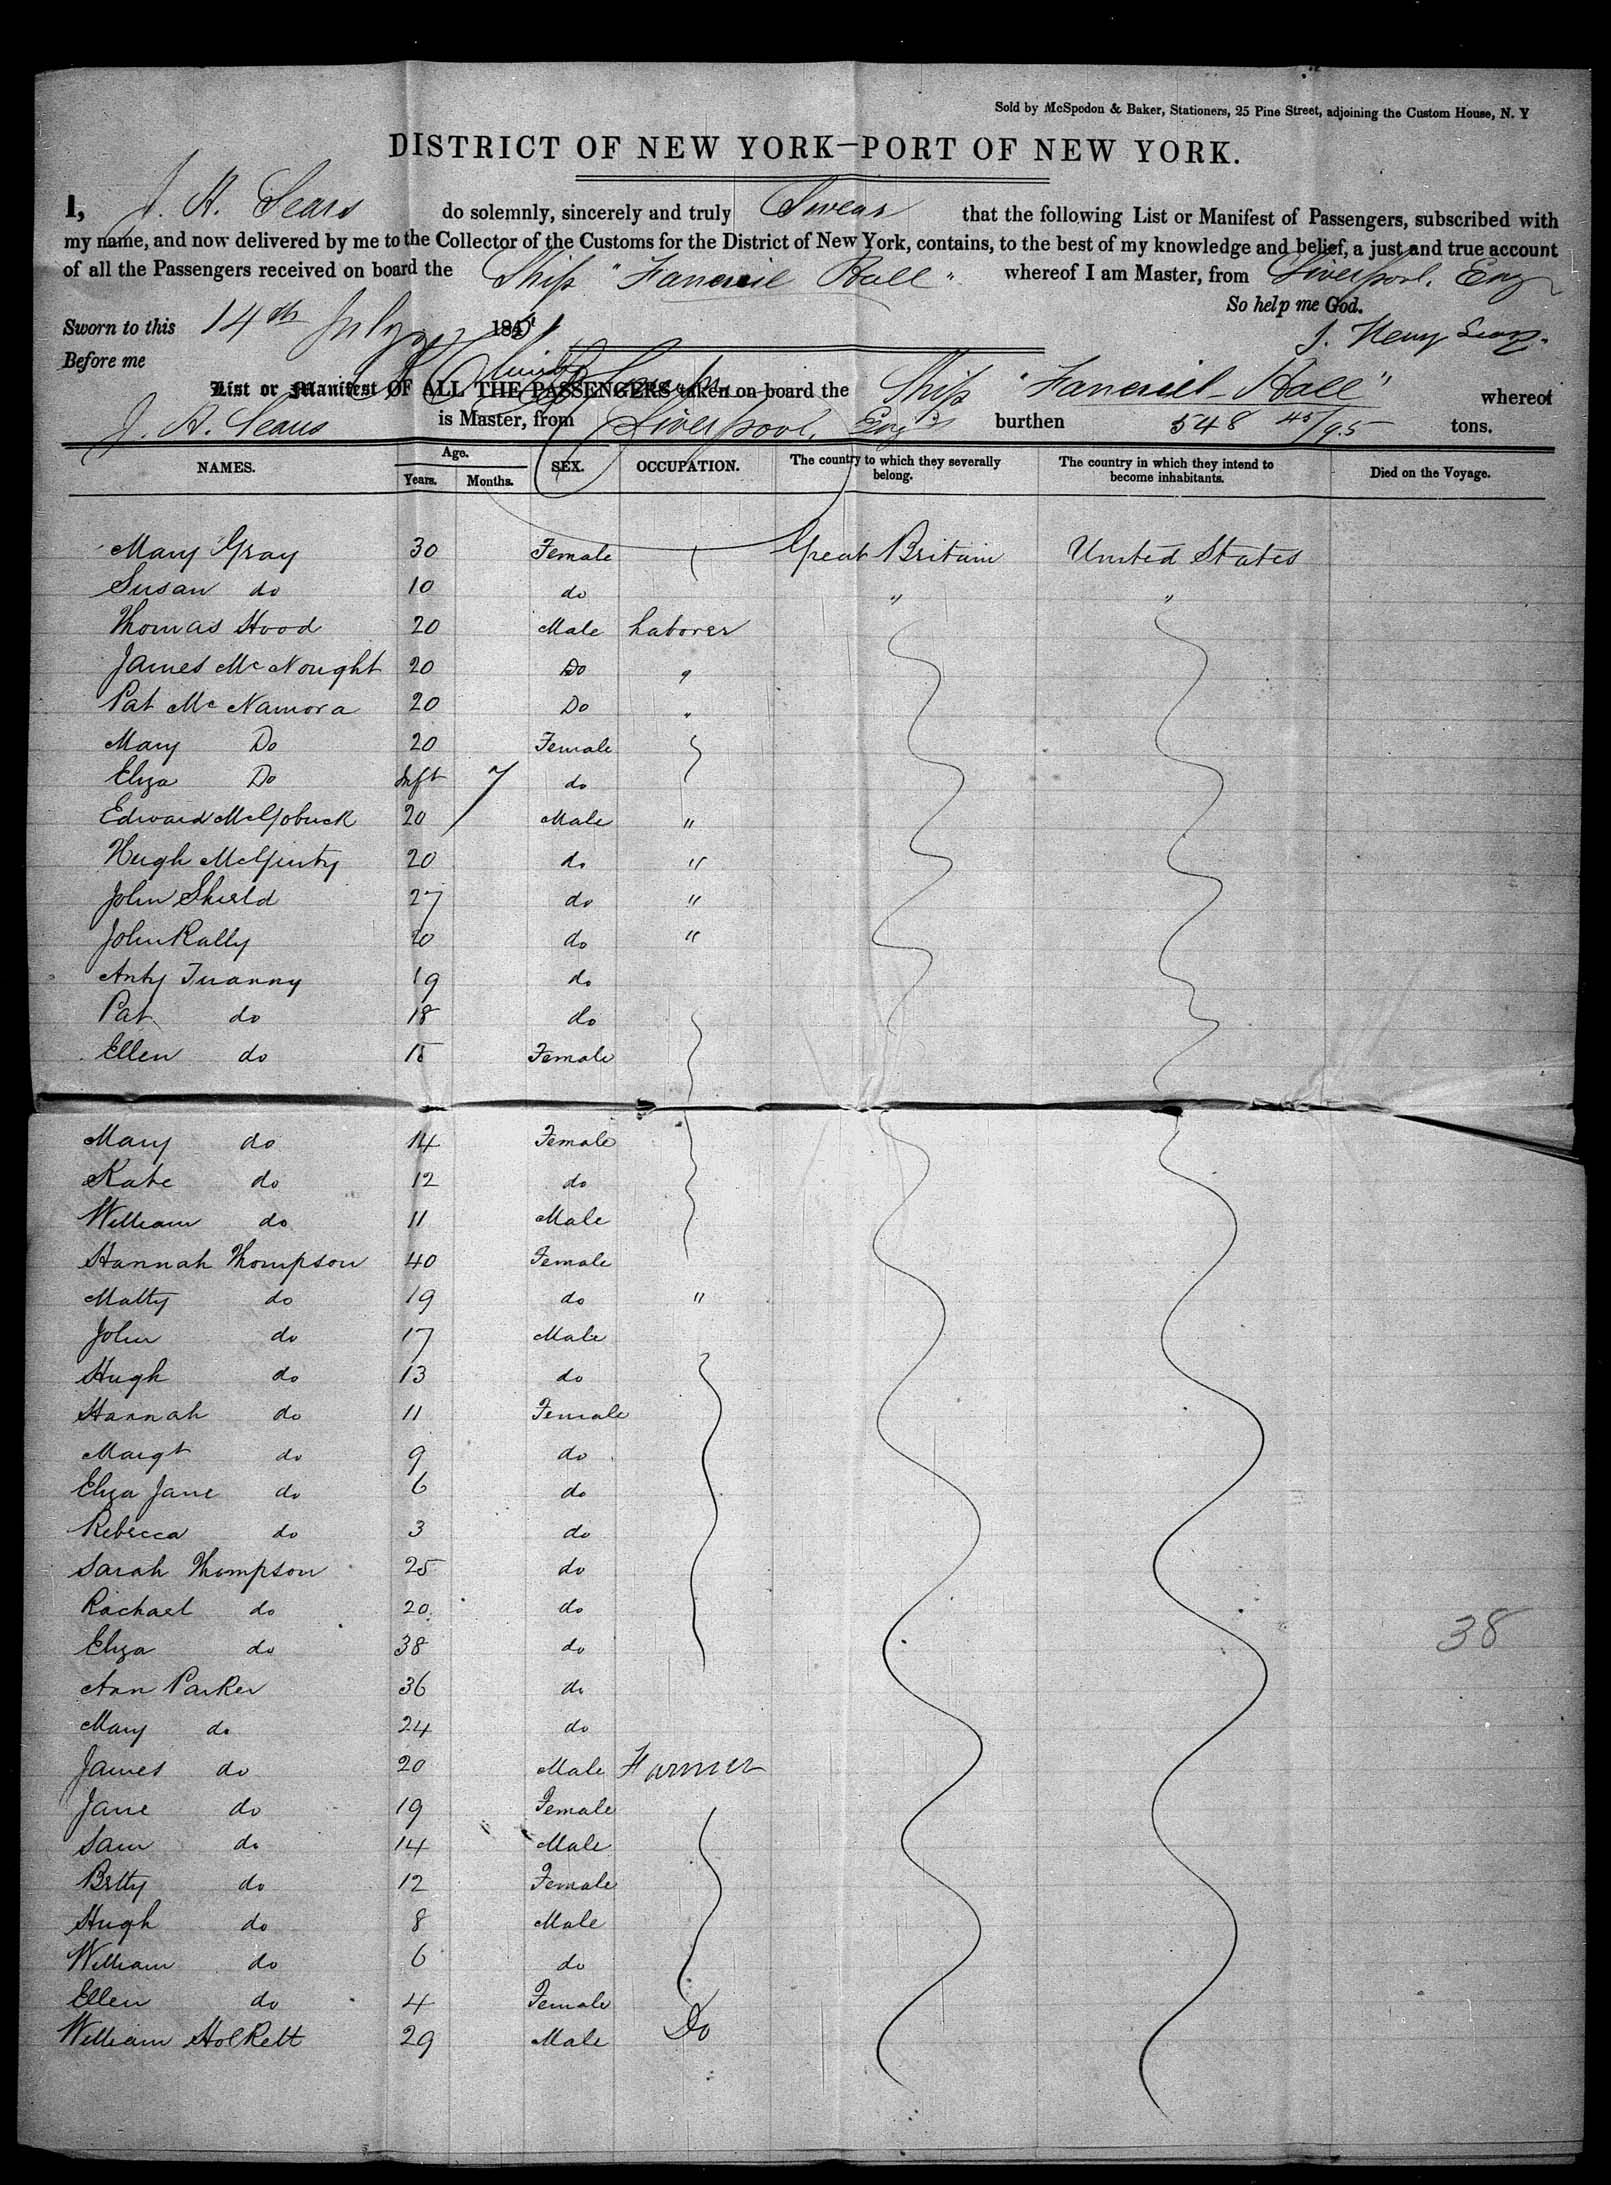 Sold by McSpedon & Baker, Stationers, 25 Pine Street, adjoining the Custom House, N. Y
DISTRICT OF NEW YORK—PORT OF NEW YORK.
I, J. H. Sears do solemnly, sincerely and truly Swear that the following List or Manifest of Passengers, subscribed with
my name, and now delivered by me to the Collector of the Customs for the District of New York, contains, to the best of my knowledge and belief, a just and true account
of all the Passengers received on board the Ship "Faneuil Hall" whereof I am Master, from Liverpool, Eng
So help me God.
Sworn to this 14th July 185
J. Henry Sears.
Before me
List or Manifest OF ALL THE PASSENGERS taken on board the Ship "Faneuiel Hall" whereof
J. H. Sears is Master, from Liverpool, Eng burthen 548 45/95 tons.
NAMES. Age. SEX. OCCUPATION. The country to which they severally belong. The country in which they intend to become inhabitants. Died on the Voyage.
Years. Months.
Mary Gray 30 Female Great Britain United States
Susan do 10 do " "
Thomas Hood 20 Male Laborer
James McNought 20 Do "
Pat McNamora 20 Do "
Mary Do 20 Female
Eliza Do Inft 7 do
Edward 20 Male "
Hugh McGinty 20 do "
John Shield 27 do "
John Rally 20 do "
Anty 19 do
Pat do 18 do
Ellen do 15 Female
Mary do 14 Female
Kate do 12 do
William do 11 Male
Hannah Thompson 40 Female
Matty do 19 do "
John do 17 Male
Hugh do 13 do
Hannah do 11 Female
Margt do 9 do
Eliza Jane do 6 do
Rebecca do 3 do
Sarah Thompson 25 do
Rachael do 20 do
Eliza do 38 do
38
Ann Parker 36 do
Mary do 24 do
James do 20 Male Farmer
Jane do 19 Female
Sam do 14 Male
Betty do 12 Female
Hugh do 8 Male
William do 6 do
Ellen do 4 Female
William Holkett 29 Male Do